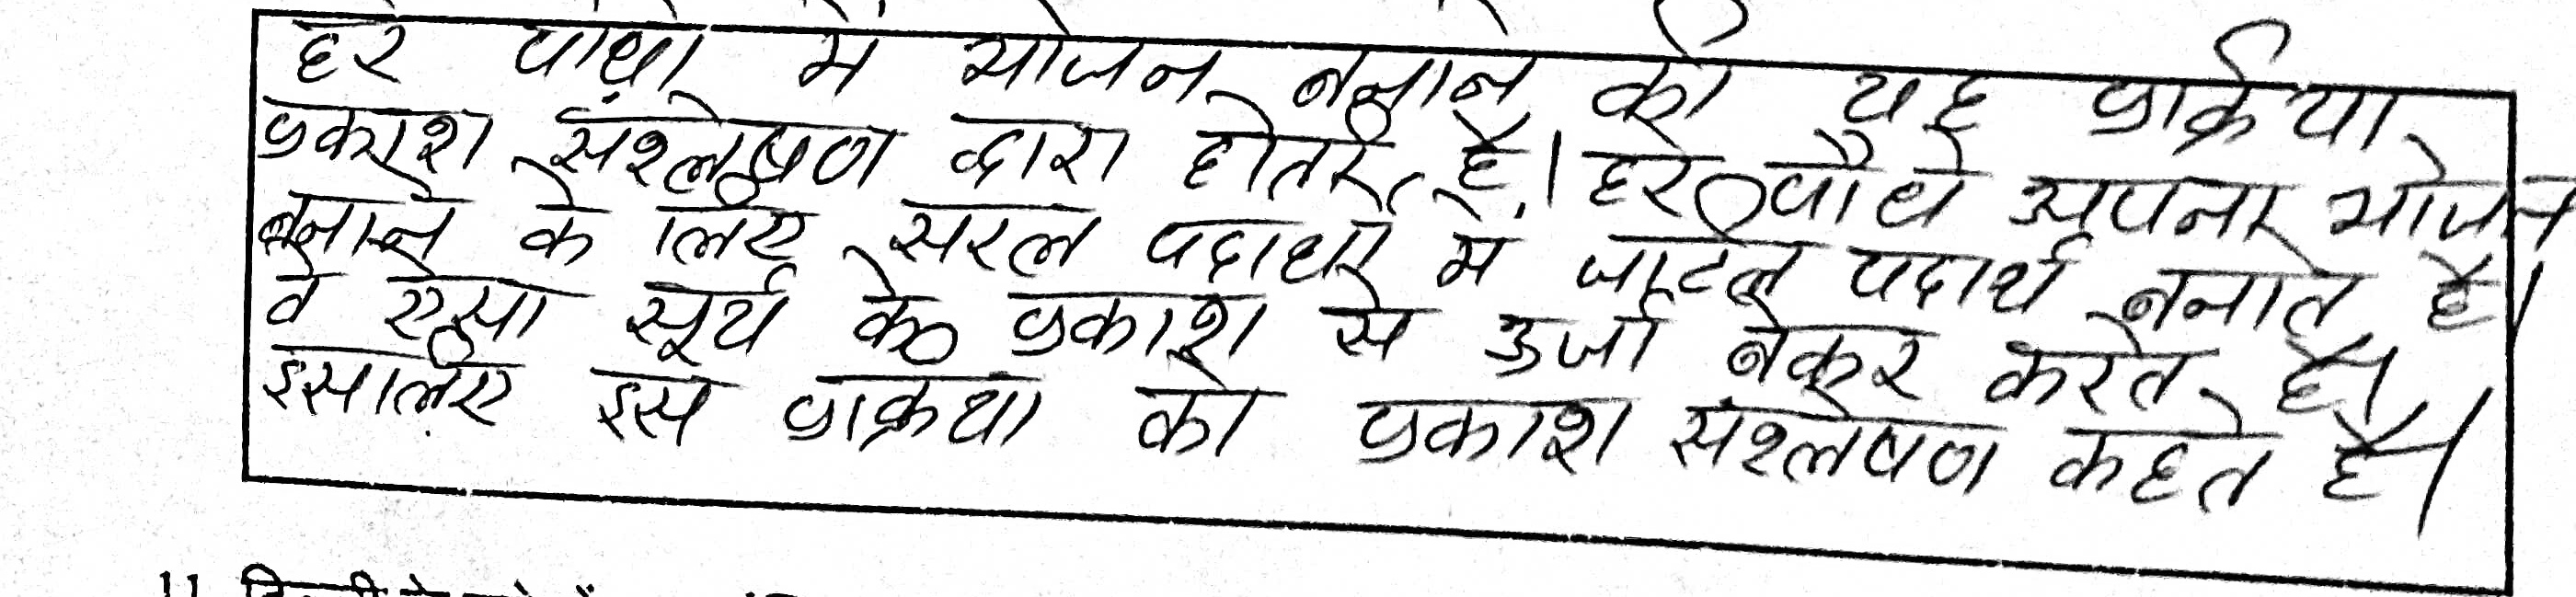 हरे पौधों में भोजन बनाने की यह प्रक्रिया
प्रकाश संश्लेषण द्वारा होती है। हरे पौधे अपना भोजन
बनाने के लिए सरल पदार्थ में जटिल पदार्थ बनाते है।
वे ऐसा सूर्य के प्रकाश से उर्जा लेकर करते है।
इसलिए इस प्रक्रिया को प्रकाश संश्लेषण कहते है।
11